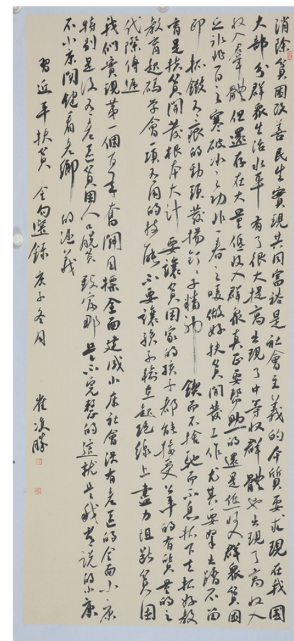 消除贫困改善民生实现共同富裕是社会主义的本质要求现在我国
大部分群众生活水平有了很大提高出现了中等收入群体也出现了高收入
收入群体但还存在大量低收入群众真正要帮助的还是低收入群众贫困
之冰非一日之寒破冰之功非一春之暖做好扶贫开发工作尤其要拿出踏石留
印抓铁有痕的劲头发扬钉钉子精神锲而不舍驰而不息抓下去抓好教
育是扶贫开发根本大计要让贫困家的孩子都能接受公平的有质量的
教育起码学会一项有用的技能不要让孩子输在起跑线上尽力阻断贫困
代际传递
我们实现第一个百年奋斗目标全面建成小康社会没有老区的全面小康
特别是没有老区贫困人口脱贫致富那是不完整的这就是我常说的小康
不小康关键看老乡的涵义
习近平扶贫金句选录庚子冬月